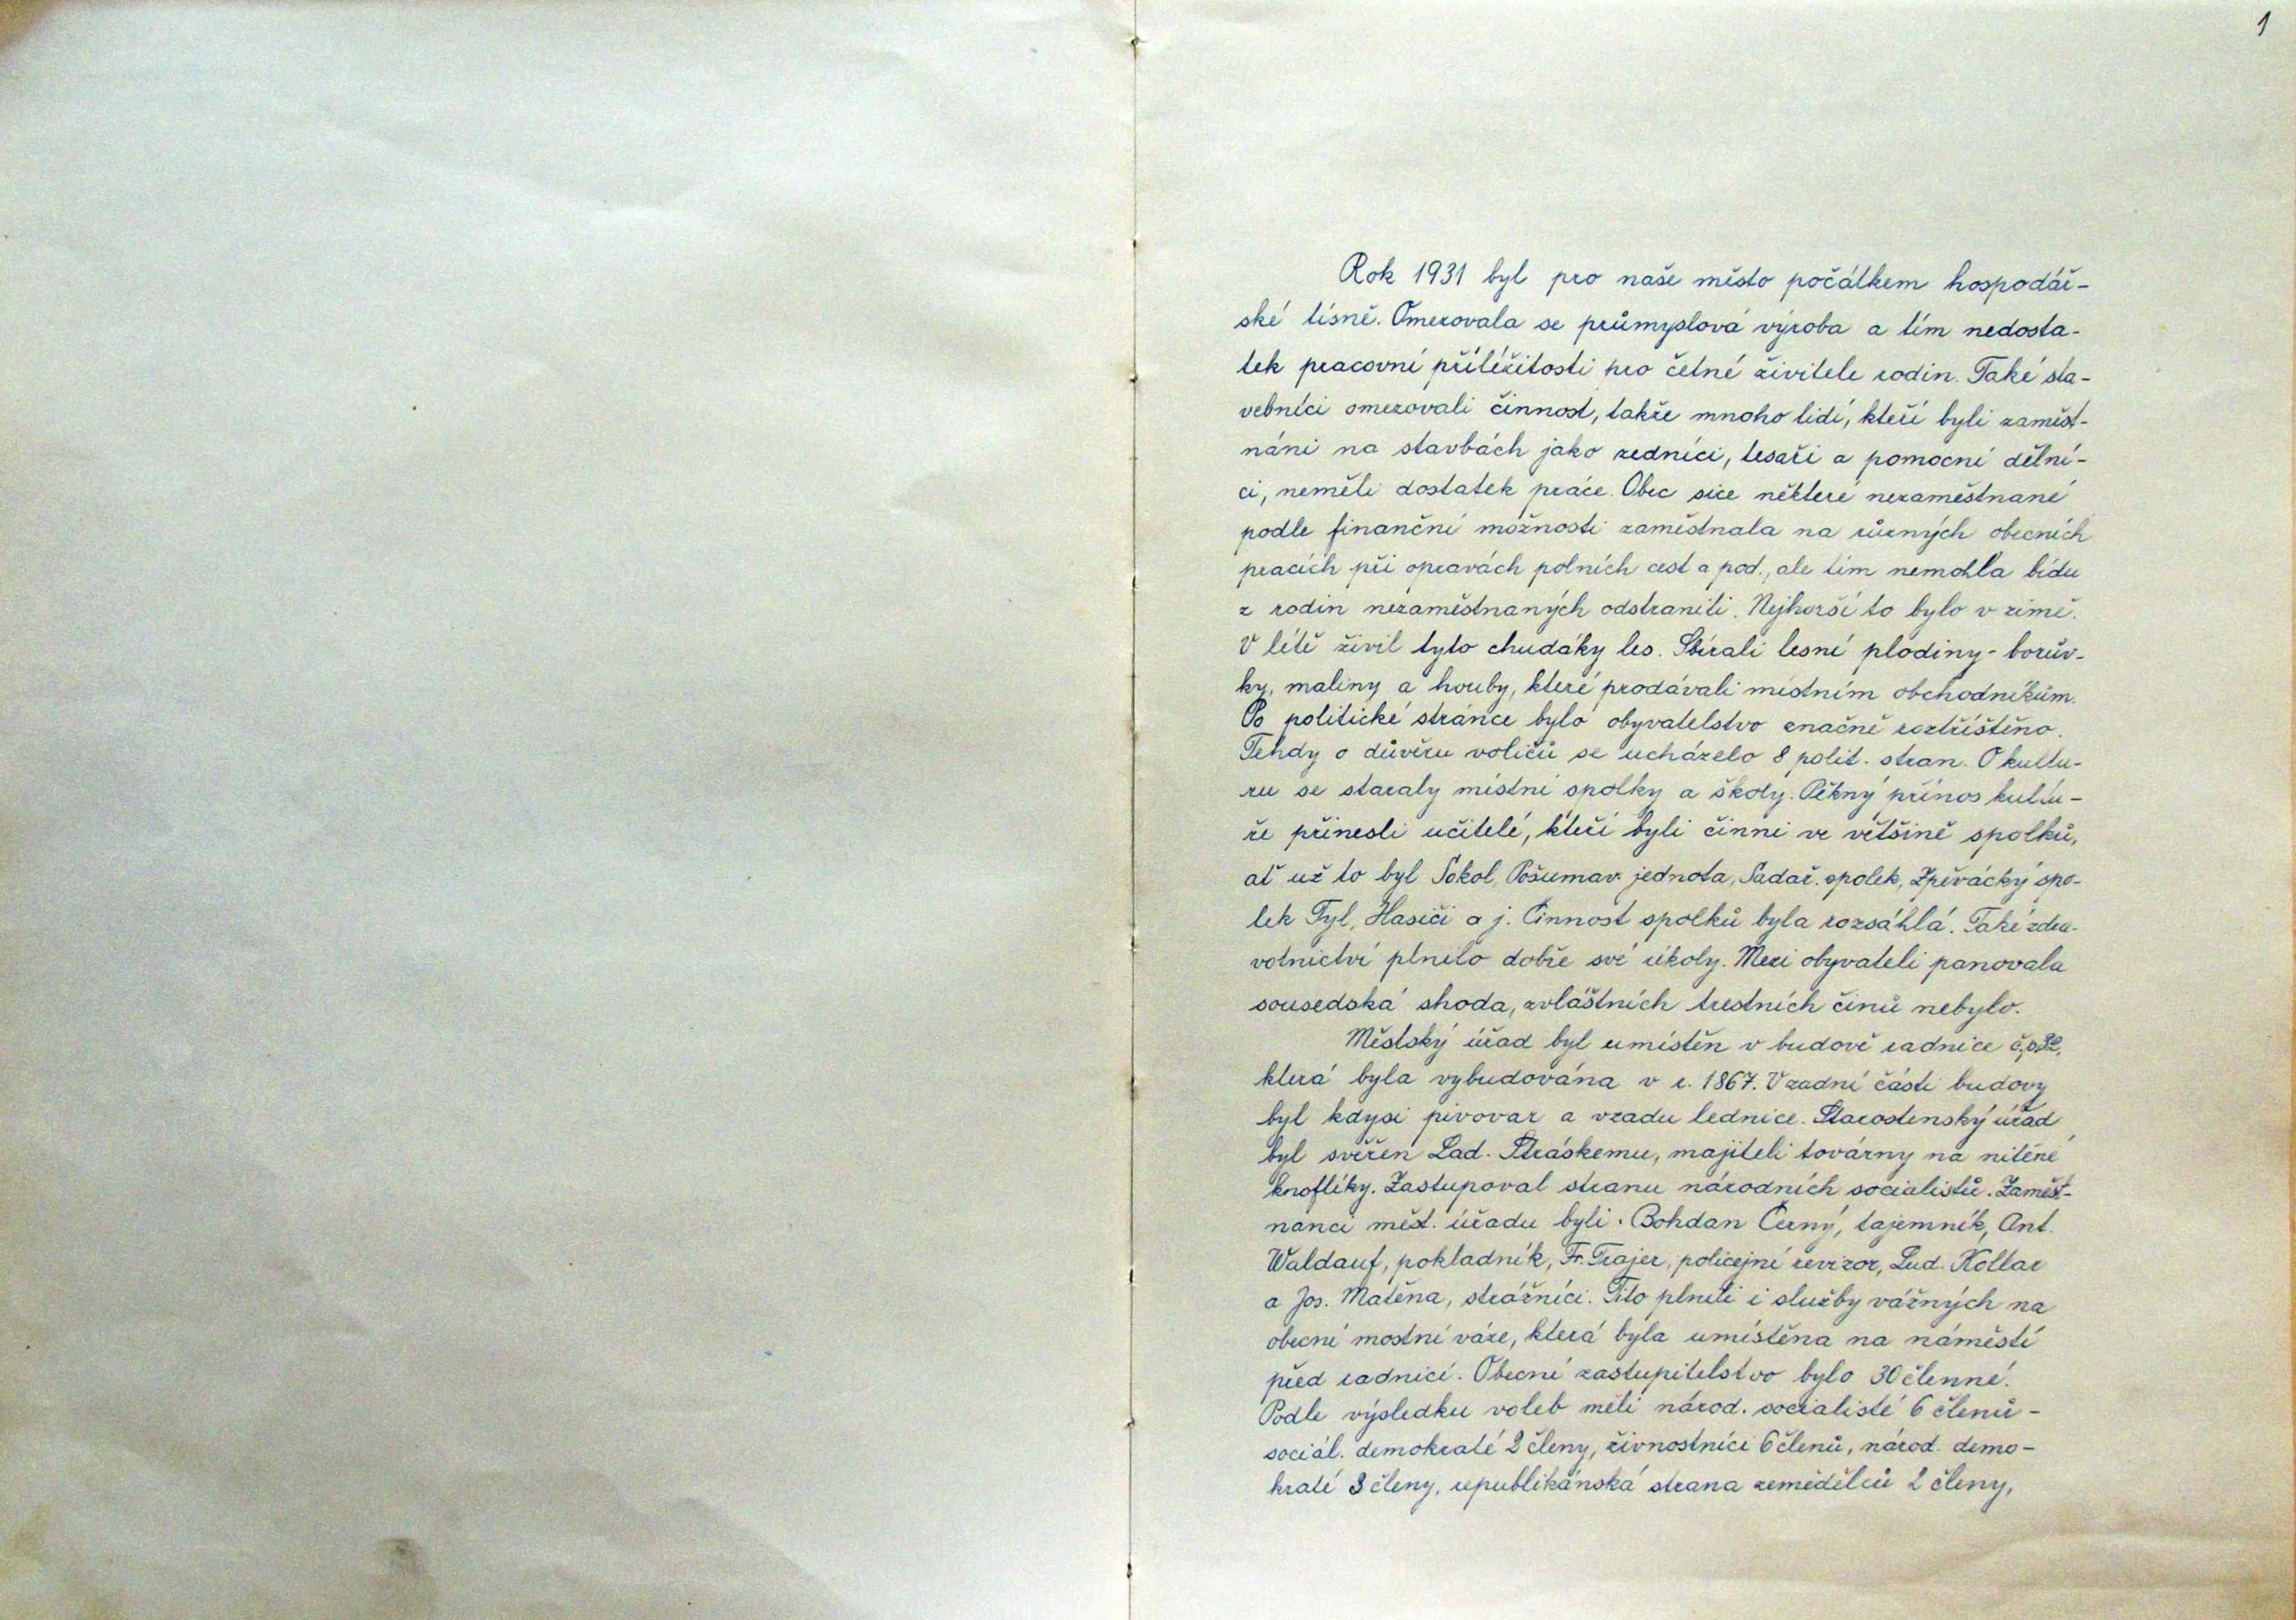 1
Rok 1931 byl pro naše město počátkem hospodář-
ské tísně. Omezovala se průmyslová výroba a tím nedosta-
tek pracovní příléžitosti pro četné živitele rodin. Také sta-
vebníci omezovali činnost, takže mnoho lidí, kteří byli zaměst-
náni na stavbách jako zedníci, tesaři a pomocní dělní-
ci, neměli dostatek práce. Obec sice některé nezaměstnané
podle finanční možnosti zaměstnala na různých obecních
pracích při opravách polních cest a pod., ale tím nemohla bídu
z rodin nezaměstnaných odstraniti. Nejhorší to bylo v zimě.
V létě živil tyto chudáky les. Sbírali lesní plodiny - borův-
ky, maliny a houby, které prodávali místním obchodníkům.
Po politické stránce bylo obyvatelstvo značně roztříštěno.
Tehdy o důvěru voličů se ucházelo 8 polit. stran. O kultu-
ru se staraly místní spolky a školy. Pěkný přínos kultu-
ře přinesli učitelé, kteří byli činni ve většině spolků,
ať už to byl Sokol, Pošumav. jednota, Sadař. spolek, Zpěvácký spo-
lek Tyl, Hasiči a j. Činnost spolků byla rozsáhlá. Také zdra-
votnictví plnilo dobře své úkoly. Mezi obyvateli panovala
sousedská shoda, zvláštních trestních činů nebylo.
Městský úřad byl umístěn v budově radnice č.p. 32,
která byla vybudována v r. 1867. V zadní části budovy
byl kdysi pivovar a vzadu lednice. Starostenský úřad
byl svěřen Lad. Stráskemu, majiteli továrny na nitěné
knoflíky. Zastupoval stranu národních socialistů. Zaměst-
nanci měst. úřadu byli: Bohdan Černý, tajemník, Ant.
Waldauf, pokladník, Fr. Trajer, policejní revizor, Lud. Kollar
a Jos. Matěna, strážníci. Tito plnili i služby vážných na
obecní mostní váze, která byla umístěna na náměstí
před radnicí. Obecní zastupitelstvo bylo 30 členné.
Podle výsledku voleb měli národ. socialisté 6 členů -
sociál. demokraté 2 členy, živnostníci 6 členů, národ. demo-
kraté 3 členy, republikánská strana zemědělců 2 členy,